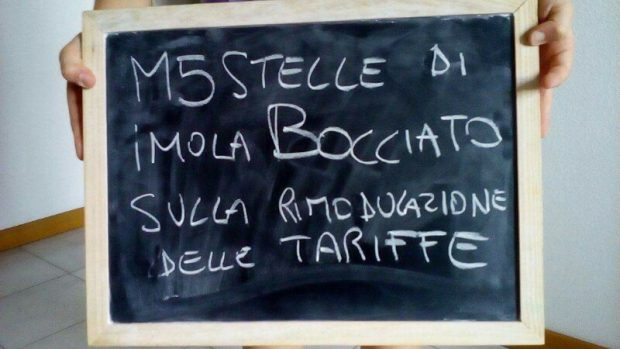 M5STELLE DI
iMOLA BOCCIATO
SULLA RIMODULAZIONE
DELLE TARIFFE